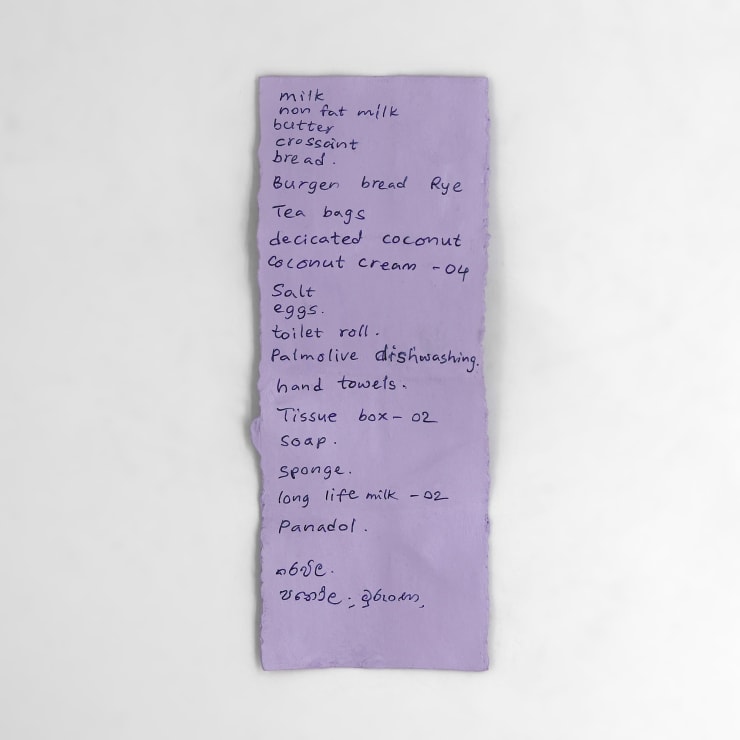 milk
non fat milk
butter
crossaint
bread.
Burgen bread Rye
Tea bags
decicated coconut
coconut cream - 04
Salt
eggs.
toilet roll.
Palmolive dishwashing.
hand towels.
Tissue box - 02
soap.
sponge.
long life milk - 02
Panadol.
කරවිල.